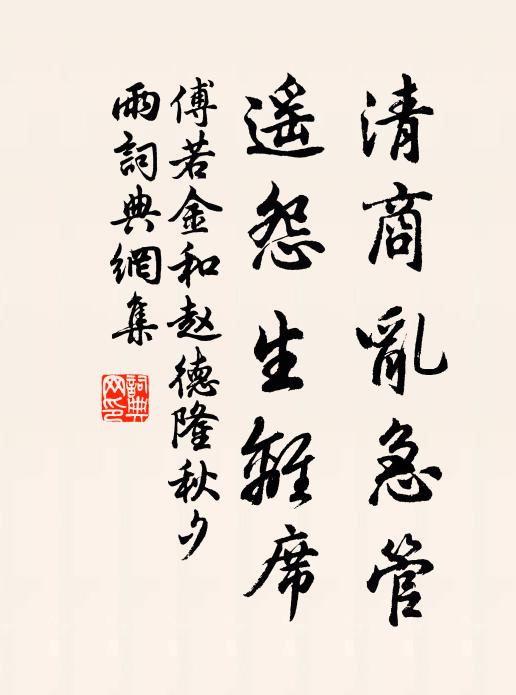 清商亂急管
遥怨生離席
傅若金和赵德隆秋夕
雨詞典網集
詞典
网印